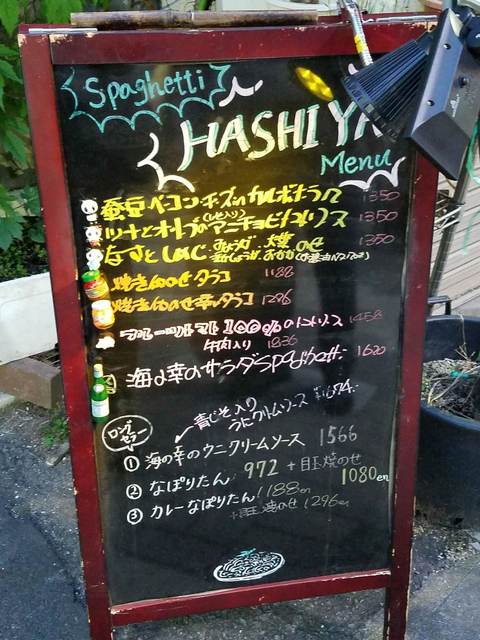 Spaghetti
HASHIYA
Menu
蚕豆ベーコンチーズのカルボナーラ 1350
ツナとオリーブのアンチョビトマトソース 1350
なすとしめじ のせ 1350
焼きたらこのせタラコ 1188
焼きたらこのせ辛タラコ 1296
フルーツトマト100%のトマトソース 1458
牛肉入り 1836
海の幸のサラダSpaghetti 1620
青じそ入り
うにクリームソース ¥1674.
ロングセラー
① 海の幸のウニクリームソース 1566
② なぽりたん 972 +目玉焼のせ 1080en
③ カレーなぽりたん 1188en
+目玉焼のせ 1296en